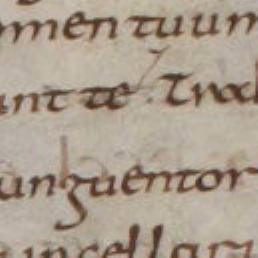 omen tuum
unt te. Trah
unguentor
in cellari